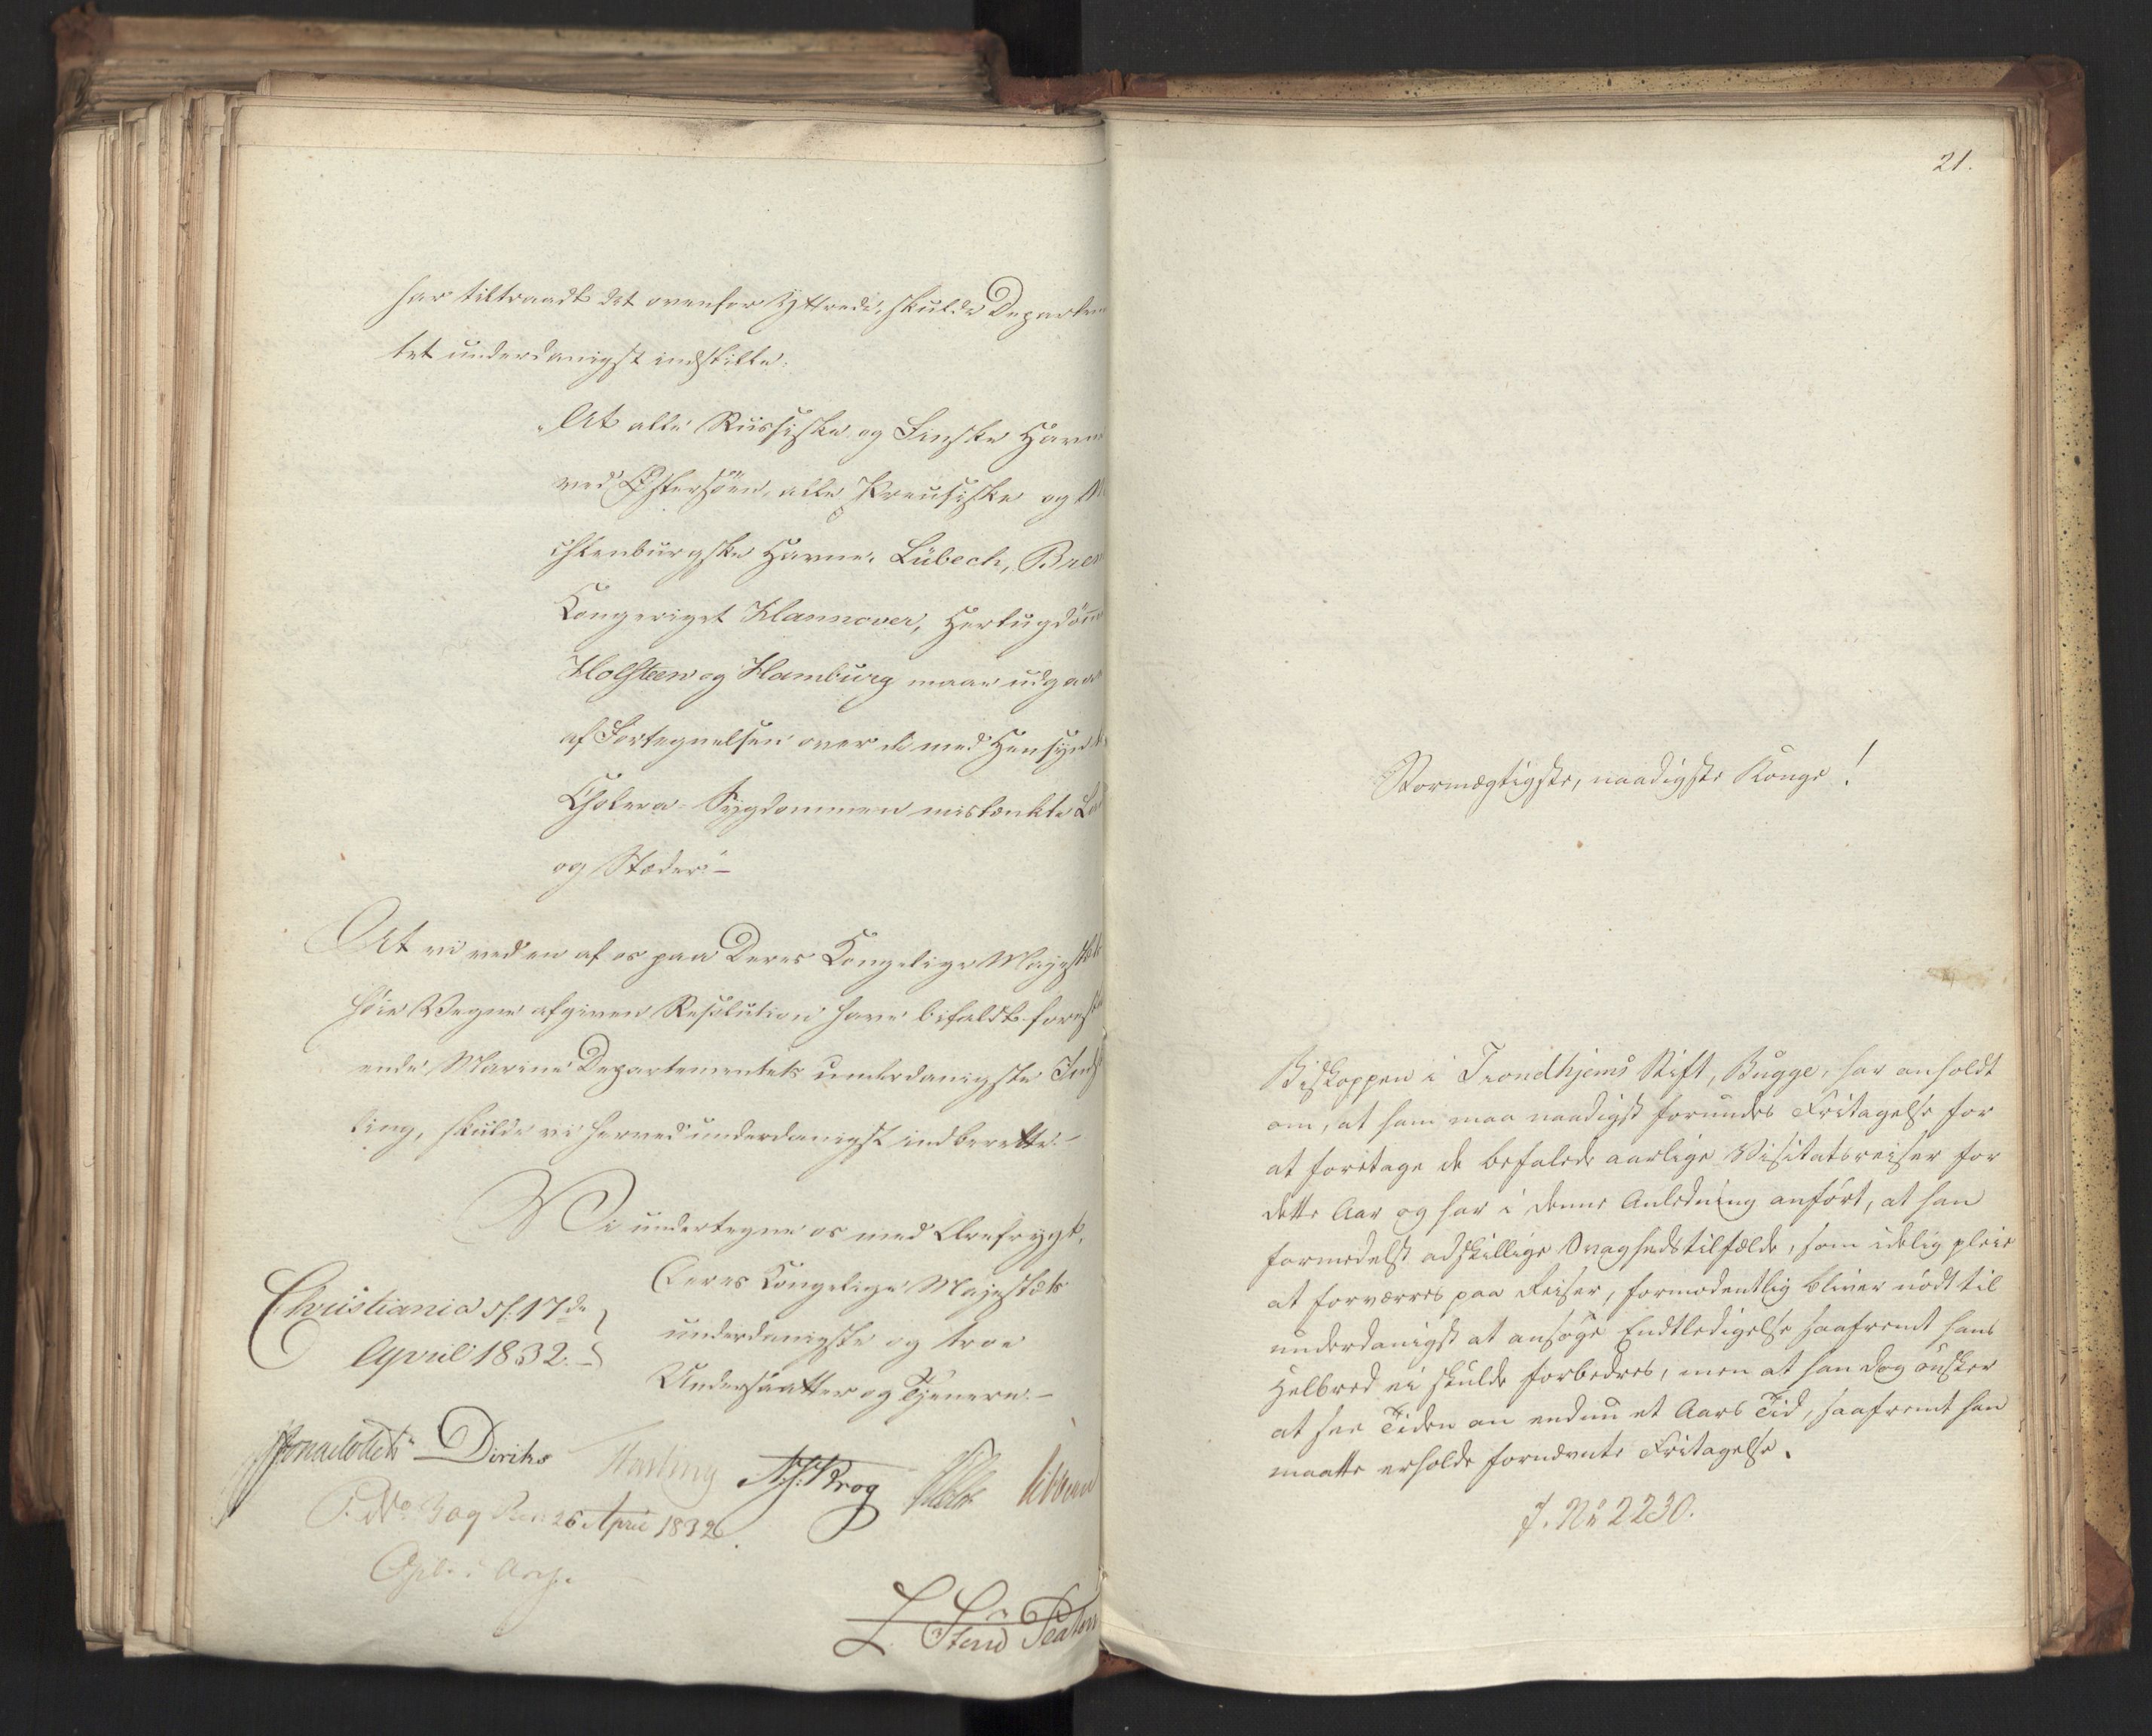 har tiltraadt det ovenfor Yttrede, skulde Departem
tet underdanigst indstille:
"At alle Russiske og Finske Havne
ved Østersöen, alle Preusiske og M
chlenburgske Havne, Lübech, Brem
Kongeriget Hannover, Hertugdömm
Holsteen og Hamburg maae udgaae
af Fortegnelsen over de med Hensyn t
Cholera-Sygdommen mistænkte La
og Stæder." –
At vi ved en af os paa Deres Kongelige Majestæts
höie Vegne afgiven Resolution have bifaldt forest
ende Marine Departementets underdanigste Indst
ling, skulde vi herved underdanigst indberette. –
Vi undertegne os med Ærefrygt,
Deres Kongelige Majestæts
Christiania d. 17de
underdanigste og troe
April 1832. –
Undersaatter og Tjenere. –
Diriks
N. J. Krog
26 April 1832.
21.
Stormægtigste, naadigste Konge!
Biskoppen i Trondhjems Stift, Bugge, har anholdt
om, at ham maa naadigst forundes Fritagelse for
at foretage de befalede aarlige Visitatsreiser for
dette Aar og har i denne Anledning anfört, at han
formedelst adskillige Svaghedstilfælde, som idelig pleie
at forværres paa Reiser, formodentlig bliver nödt til
underdanigst at ansöge Endtledigelse saafremt hans
Helbred ei skulde forbedres, men at han dog önsker
at see Tiden an endnu et Aars Tid, saafremt han
maatte erholde fornævnte Fritagelse.
J. No 2230.